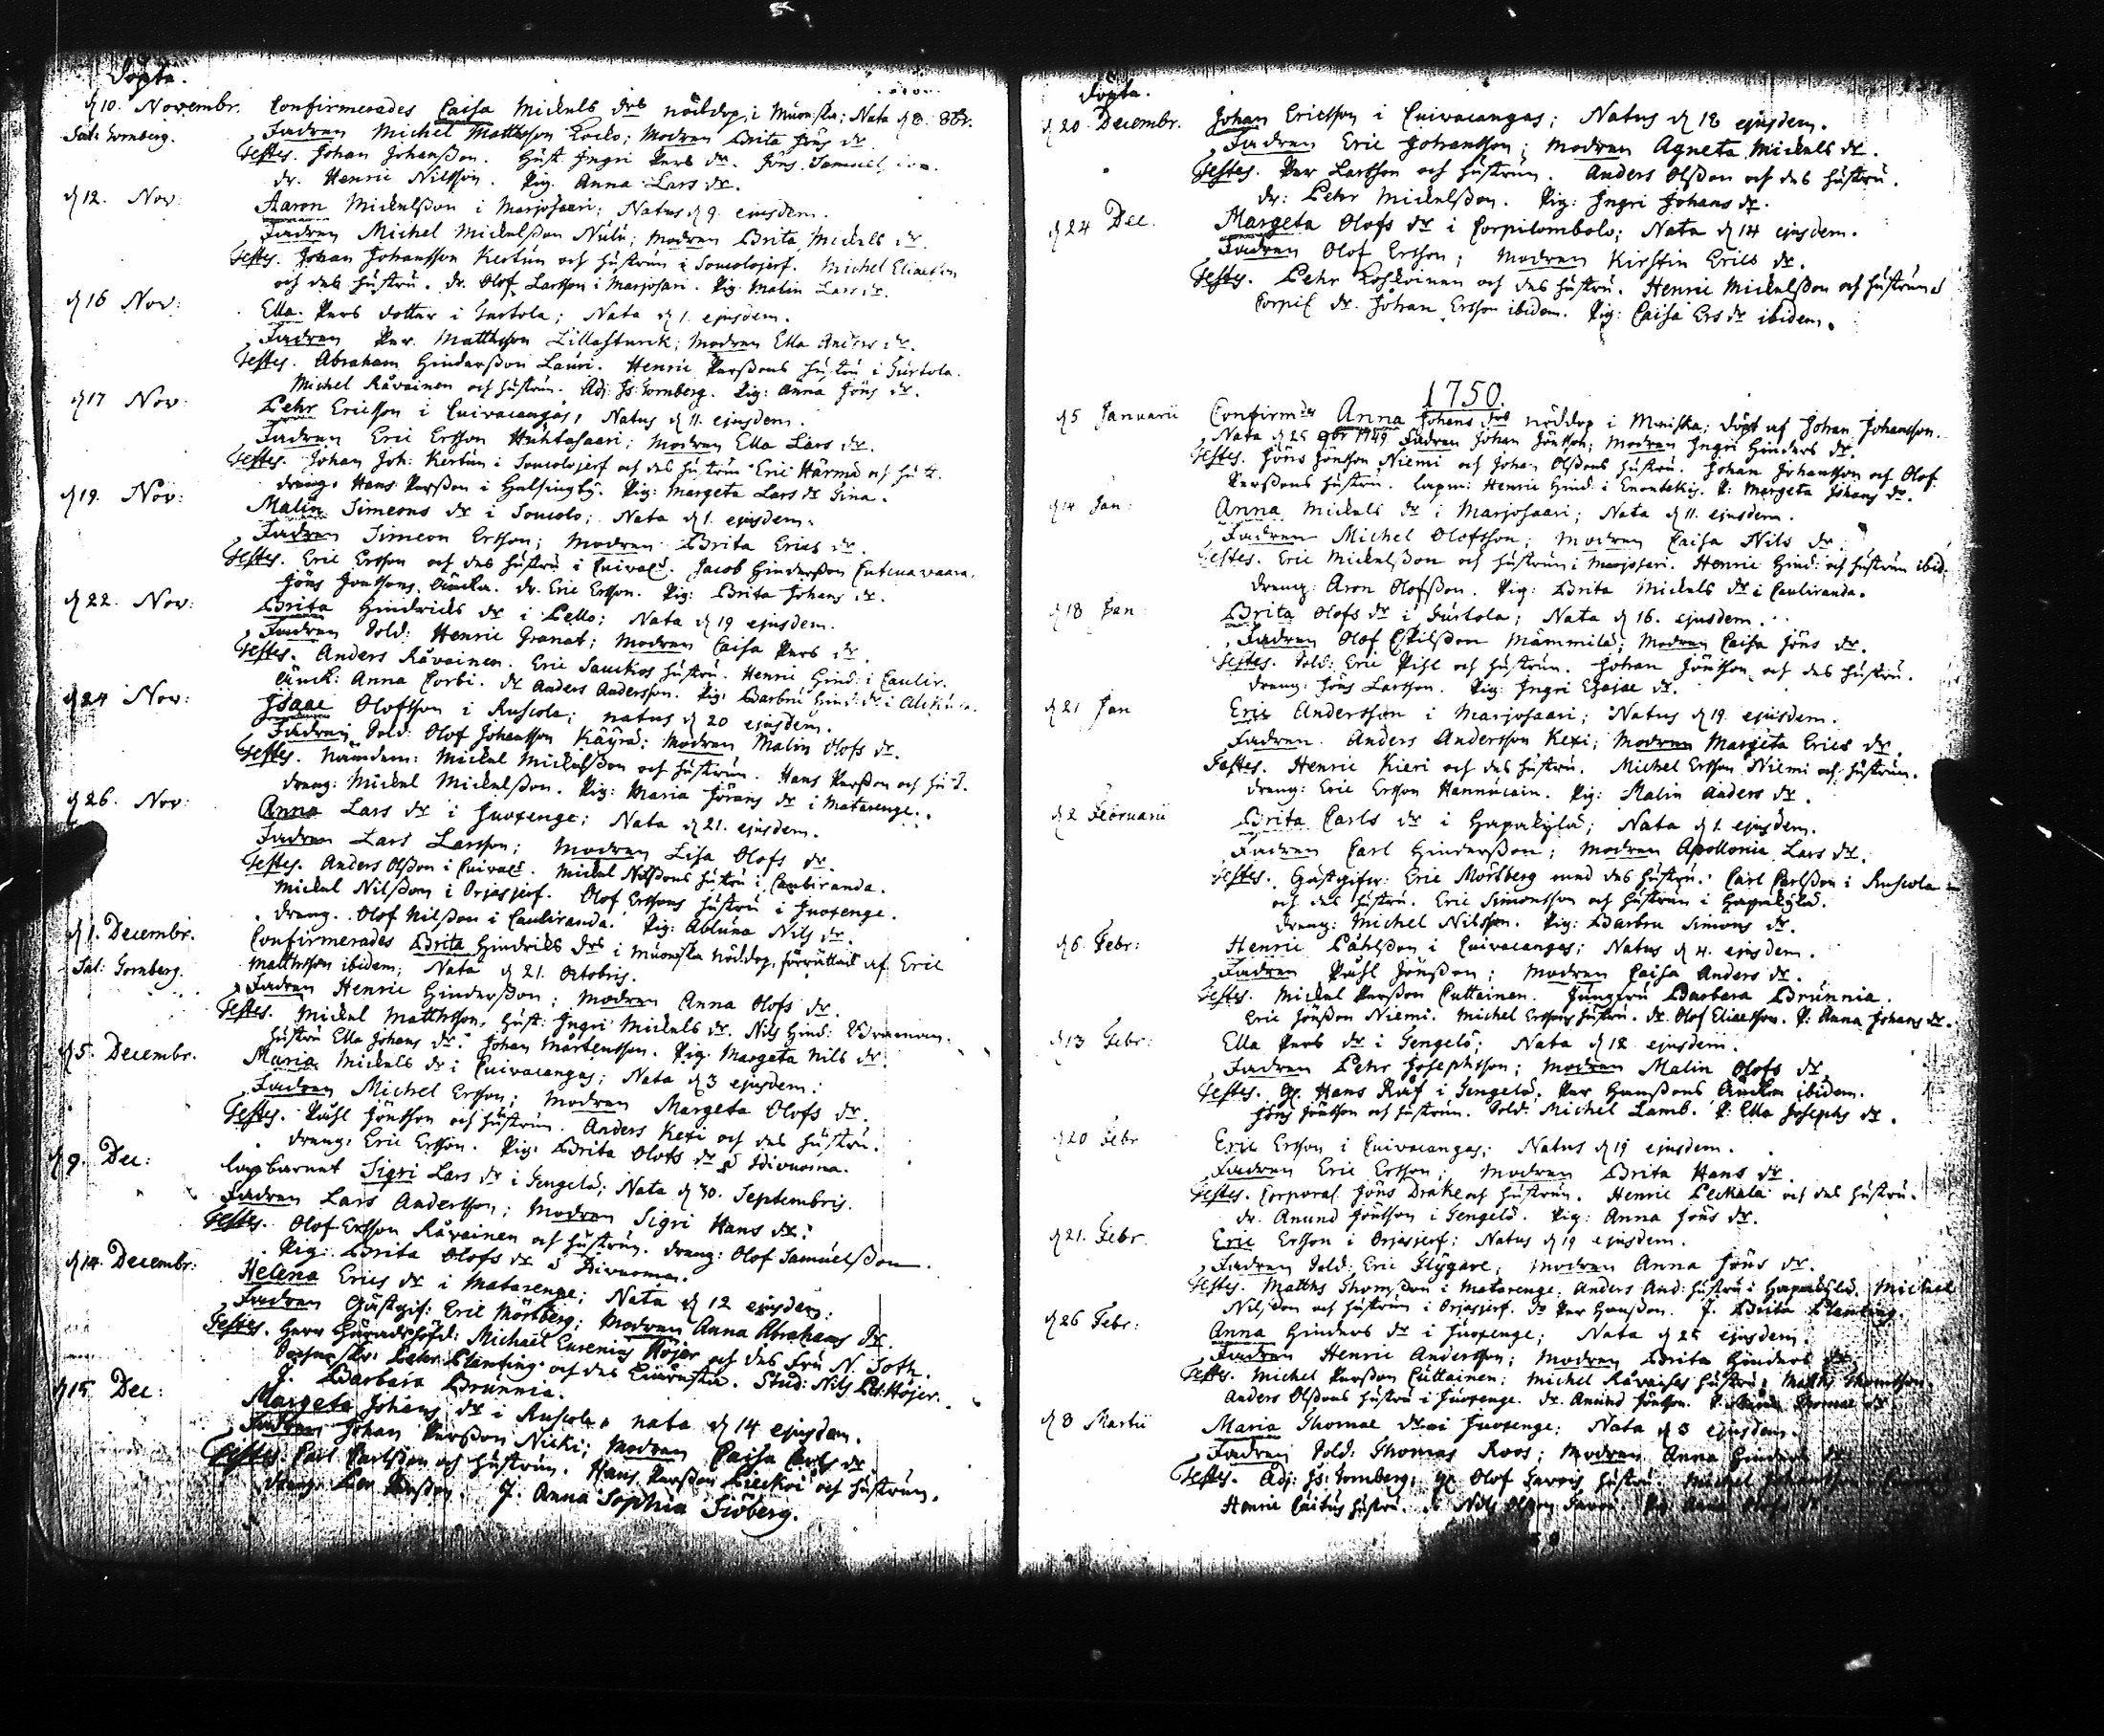 Döpta.
d 10. Novembr. Confirmerades Caisa Mickels drs nöddop, i Muoniska; Nata d 8. 8br.
Sac: Tornberg. Fadren Michel Matthsson Kocko; Modren Brita Jöns dr
Testes. Johan Johanßon. Hust. Ingri Pers dr. Jöns Samuel
dr. Henric Nilsson. Pig. Anna Lars dr.
d 12. Nov: Aaron Mickelßon i Marjosaari; Natus d 9. ejusdem.
Fadren Michel Mickelßon Nulu; Modren Brita Mickels dr.
Testes. Johan Johansson Kertun och hustrun i Soucolojerf. Michel Eliaeßon
och des hustru. dr. Olof Larsson i Marjosari. Pig. Malin Lars dr.
d 16 Nov: Ella Pers dotter i Turtola; Nata d 1. ejusdem.
Fadren Per Matthsson Lillasturck; Modren Ella Anders dr.
Testes. Abraham Hinderßon Lauri. Henric Perßons hustru i Turtola.
Michel Råvainen och hustrun. Adj: Is: Tornberg. Pig: Anna Jöns dr.
d 17 Nov: Pehr Ericsson i Cuivacangas, Natus d 11. ejusdem.
Fadren Eric Ersson Huhtasaari; Modren Ella Lars dr.
Testes. Johan Joh: Kertun i Soucolojerf och des hustrun Eric Härmä och hustr.
dreng. Hans Perßon i Helsingby. Pig: Margeta Lars dr
d 19. Nov: Malin Simeons dr i Soucolo; Nata d 1. ejusdem.
Fadren Simeon Ersson; Modren Brita Erics dr.
Testes. Eric Ersson och des hustru i Cuivac. Jacob Hinderßon
Jöns Jönssons Änckia. dr. Eric Ersson. Pig: Brita Johans dr.
d 22. Nov: Brita Hindricks dr i Pello; Nata d 19 ejusdem.
Fadren Sold: Henric Granat; Modren Caisa Pers dr.
Testes. Anders Råvainen. Eric Sauckos hustru. Henric Hind: i Caulir.
Änck: Anna Corbi. dr Anders Andersson. Pig: Barbru Hind: dr i
d 24 Nov: Isaac Olofsson i Ruscola; natus d 20 ejusdem.
Fadren Sold. Olof Johansson Käyrä; Modren Malin Olofs dr.
Testes. Nämdem: Mickel Mickelßon och hustrun. Hans Perßon och hust.
dreng: Mickel Mickelßon. Pig: Maria Jörans dr i Matarenge.
d 26. Nov: Anna Lars dr i Juoxenge; Nata d 21. ejusdem.
Fadren Lars Larsson; Modren Lisa Olofs dr.
Testes. Anders Olßon i Cuivac. Mickel Nilßons hustru i Cauliranda.
Mickel Nilßon i Orjasjerf. Olof Erssons hustru i Juoxenge.
dreng. Olof Nilßon i Cauliranda. Pig: Abluna Nils dr.
d 1. Decembr. Confirmerades Brita Hindricks drs i Muoniska nöddop, förrättad af Eric
Sac: Tornberg. Matthsson ibidem; Nata d 21. Octobris.
Fadren Henric Hinderßon; Modren Anna Olofs dr.
Testes. Mickel Matthsson, Hust: Ingri Mickels dr. Nils Hind:
hustru Ella Johans dr. Johan Mårtensson. Pig: Margeta Nils dr.
d 5. Decembr. Maria Mickels dr i Cuivacangas; Nata d 3 ejusdem.
Fadren Michel Ersson; Modren Margeta Olofs dr.
Testes. Påhl Jönsson och hustrun. Anders Kexi och des hustru.
dreng. Eric Ersson. Pig: Brita Olofs dr
d 9. Dec: Lapbarnet Sigri Lars dr i Tengelä; Nata d 30. Septembris.
Fadren Lars Andersson; Modren Sigri Hans dr.
Testes. Olof Ersson Råvainen och hustrun. dreng: Olof Samuelßon
Pig: Brita Olofs dr
d 14. Decembr: Helena Erics dr i Matarenge; Nata d 12 ejusdem.
Fadren Gästgif: Eric Mörtberg; Modren Anna Abrahams dr.
Testes. Herr Häradshöfd: Michael Eurenius Höjer och des Fru N. Toth.
Pehr Planting och des
Stud: Nils Pet: Höjer.
J. Barbara Brunnia.
d 15 Dec: Margeta Johans dr i Ruscola, nata d 14 ejusdem.
Fadren Johan Perßon Nicki; Modren Caisa Carls dr
Testes. Carl Carlßon och hustrun. Hans Perßon och hustrun.
dreng. Perßon. J. Anna Sophia Siöberg.
Döpta.
d. 20. Decembr. Johan Ericsson i Cuivacangas; Natus d 18 ejusdem.
Fadren Eric Johansson; Modren Agneta Mickels dr.
Testes. Per Larsson och hustrun. Anders Olßon och des hustru.
dr: Pehr Mickelßon. Pig: Ingri Johans dr.
d 24 Dec. Margeta Olofs dr i Corpilombolo; Nata d 14 ejusdem.
Fadren Olof Ersson; Modren Kirstin Erics dr.
Testes. Pehr Koskoinen och des hustru. Henric Mickelßon och hustrun
Corpil dr. Johan Ersson ibidem. Pig: Caisa Ers dr ibidem.
1750.
d 5 Januarii Confirmdes Anna Johans drs nöddop i Muniska; döpt af Johan Johansson.
Nata d 25 9br 1749. Fadren Johan Jönsson; Modren Ingri Hinders dr.
Testes. Jöns Jönsson Niemi och Johan Olßons hustru. Johan Johansson och Olof
Perßons hustru. Lapm: Henric Hind: i Enontekis. P: Margeta Johans dr.
d 14 Jan: Anna Mickels dr i Marjosaari; Nata d 11. ejusdem.
Fadren Michel Olofsson; Modren Caisa Nils dr.
Testes. Eric Mickelßon och hustrun i Marjosari. Henric Hind: och hustrun ibid.
dreng: Aron Olofßon. Pig: Brita Mickels dr i Cauliranda.
d 18 Jan Brita Olofs dr i Turtola; Nata d 16. ejusdem.
Fadren Olof Eskilßon Mämmilä; Modren Caisa Jöns dr.
Testes. Sold: Eric Pihl och hustrun. Johan Jönsson och des hustru.
dreng: Jöns Larsson. Pig: Ingri Esajae dr.
d 21 Jan Eric Andersson i Marjosaari; Natus d 19. ejusdem.
Fadren. Anders Andersson Kexi; Modren Margeta Erics dr.
Testes. Henric Kieri och des hustru. Michel Ersson Niemi och hustrun.
dreng: Eric Ersson Hannucain. Pig: Malin Anders dr.
d 2 Februarii Brita Carls dr i Hapakylä; Nata d 1. ejusdem.
Fadren Carl Hinderßon; Modren Apollonia Lars dr.
Testes. Gästgifvr: Eric Mörtberg med des hustru. Carl Carlßon i Ruscola
och des hustru. Eric Simonsson och hustrun i Hapakylä.
dreng: Michel Nilsson. Pig: Barbru Simons dr.
d 6. Febr: Henric Påhlßon i Cuivacangas; Natus d 4. ejusdem.
Fadren Påhl Jönßon; Modren Caisa Anders dr.
Testes. Mickel Perßon Cuttainen. Jungfru Barbara Brunnia.
Eric Jönßon Niemi. Michel Erssons hustru. dr. Olof Eliaesson. P: Anna Johans dr.
d 13 Febr: Ella Pers dr i Tengelö; Nata d 12 ejusdem.
Fadren Pehr Josephsson; Modren Malin Olofs dr.
Testes. Hans Räf i Tengelä, Per Hansßons Änckia ibidem.
Jöns Jönsson och hustrun. Sold: Michel Lamb. P: Ella Josephs dr.
d 20 Febr Eric Ersson i Cuivacangas; Natus d 19 ejusdem.
Fadren Eric Ersson; Modren Brita Hans dr.
Testes. Corporal Jöns Drake och hustrun. Henric Peckala och des hustru.
dr. Anund Jönsson i Tengelö. Pig: Anna Jöns dr.
d 21. Febr. Eric Ersson i Orjasjerf; Natus d 19 ejusdem.
Fadren Sold: Eric Flygare; Modren Anna Jöns dr.
Testes. Matths Thomßon i Matarenge. Anders And: hustru i Hapakylä. Michel
Nilßon och hustrun i Orjasjerf. dr Per Hansßon. J. Brita Planting.
d 26 Febr: Anna Hinders dr i Juoxenge; Nata d 25 ejusdem.
Fadren Henric Andersson; Modren Brita Hinders dr
Testes. Michel Perßon Cuttainen; Michel Råvaises hustru; Matths Thomsson.
Anders Olßons hustru i Juoxenge. dr. Anund Jönsson. P. Thomae dr.
d 8 Martii Maria Thomae dr i Juoxenge; Nata d 3 ejusdem.
Fadren Sold: Thomas Roos; Modren Anna Hinders dr
Testes. Adj: Is: Tornberg; Olof hustru. Michel Johansson
Henric hustru. Nils Olßon Pig: Anna Olofs dr.